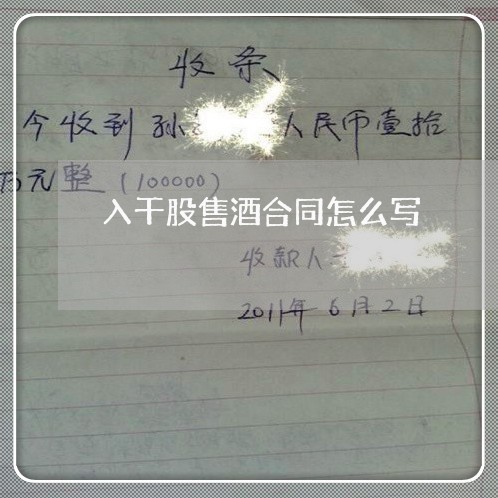 收条
今收到孙 人民币壹拾
万元整(100000)
入干股售酒合同怎么写
收款人
2011年6月2日